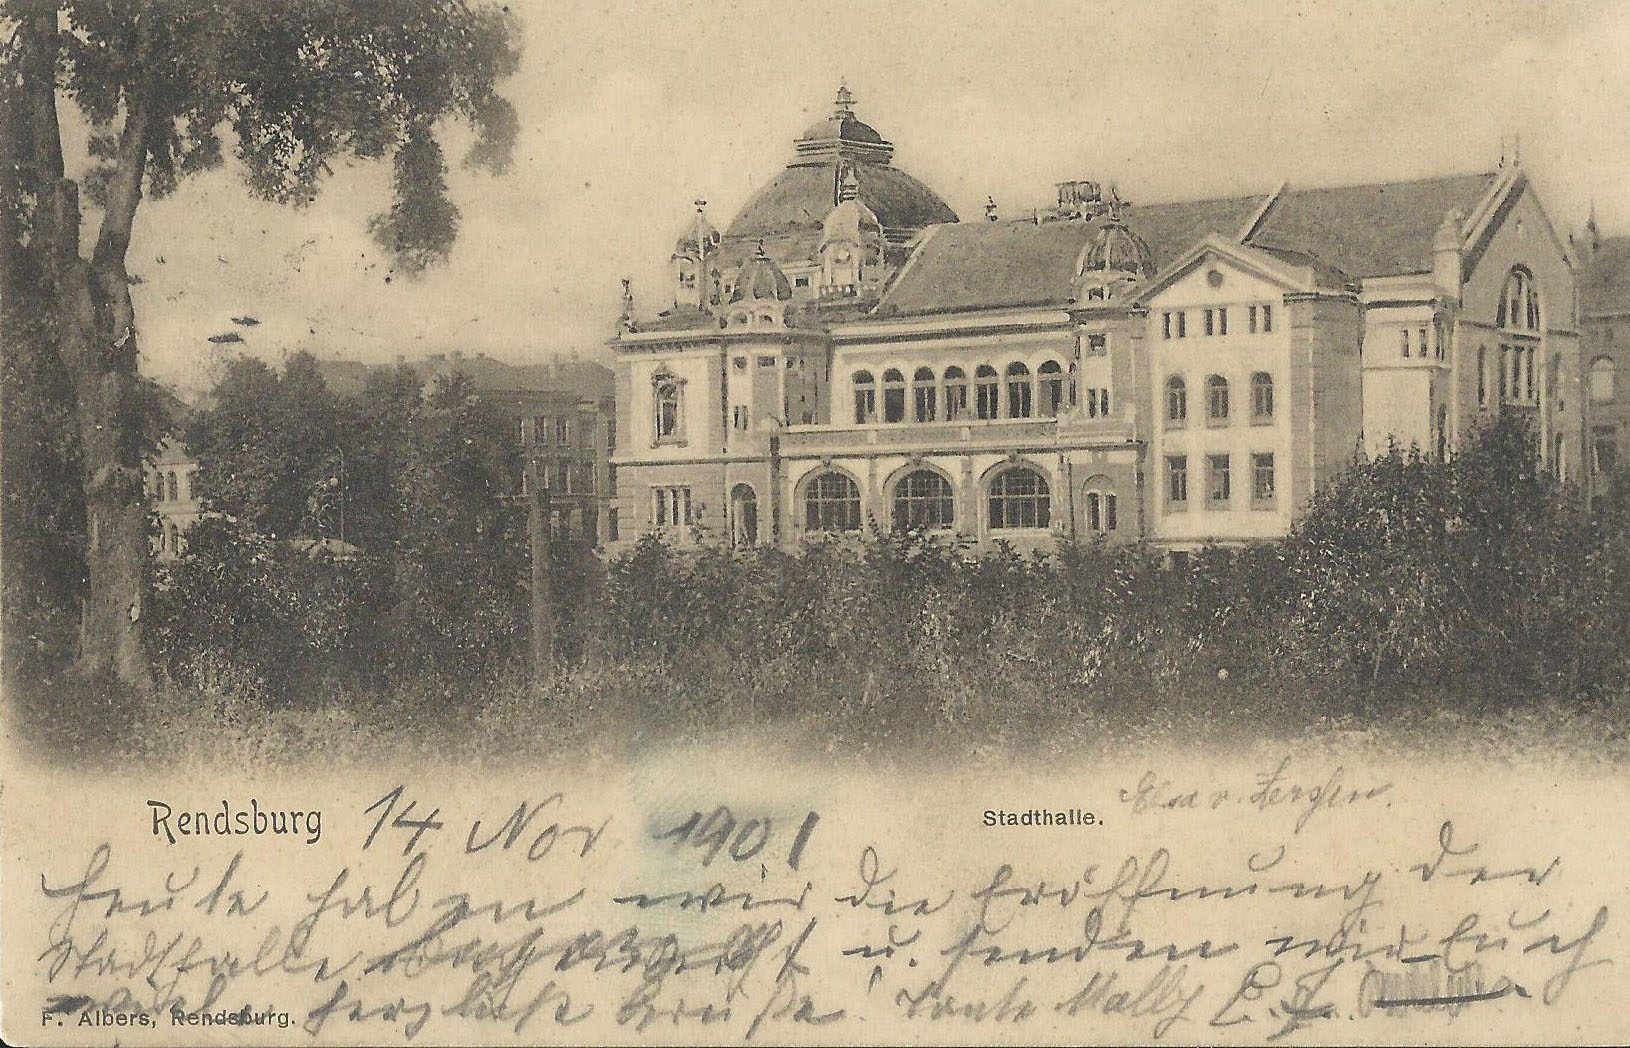 Rendsburg 14 Nov. 1901
Stadthalle.
Heute haben wir die Eröffnung der
Stadthalle u. senden wir Euch
herzlichste Grüße! Tante Mally
F. Albers, Rendsburg.